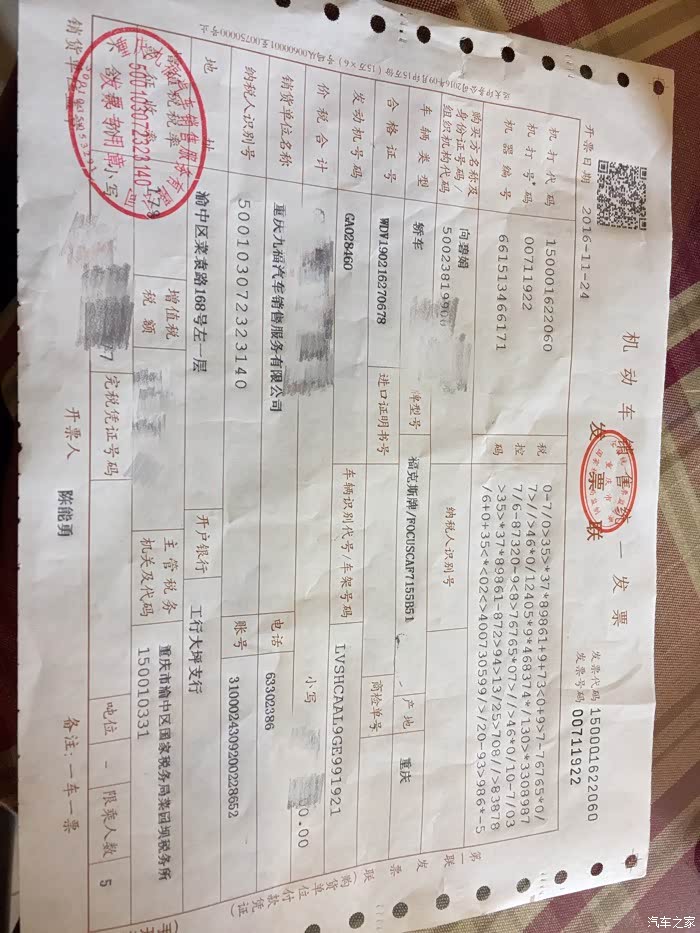 机动车销售统一发票
发票联
发票代码 150001622060
发票号码 00711922
开票日期 2016-11-24
机打代码 150001622060
机打号码 00711922
机器编号 661513466171
税控码
0-7/0>35>*37*89861+9+73<0+9>7-76765*0/
7>/>46*0/12405*9*468374*/130>*3308987
7/6-87320-9<8>76765*07>/>46*0/10-7/03
>35>*37*89861-872>94>13/25>708//>83978
/6+0+35<*<02<>400730599/>/20-93>986*-5
购买方名称及身份证号码/组织机构代码
向碧娟
50023819900
纳税人识别号
车辆类型 轿车
牌型号 福克斯牌/FOCUSCAF7155B51
产地 重庆
合格证号 WDV190216270678
进口证明书号
商检单号
发动机号码 GA028460
车辆识别代号/车架号码 LVSHCAAL9GE991921
价税合计
小写 00.00
销货单位名称 重庆九福汽车销售服务有限公司
电话 63302386
纳税人识别号 500103072323140
账号 3100024309200228652
地址 渝中区菜袁路168号左一层
开户银行 工行大坪支行
增值税税额
主管税务机关及代码
重庆市渝中区国家税务局菜园坝税务所
150010331
小写
完税凭证号码
吨位 -
限乘人数 5
销货单位
开票人 陈能勇
备注:一车一票
500103072323140
发票专用章
第一联 发票联(购货单位付款凭证)
汽车之家